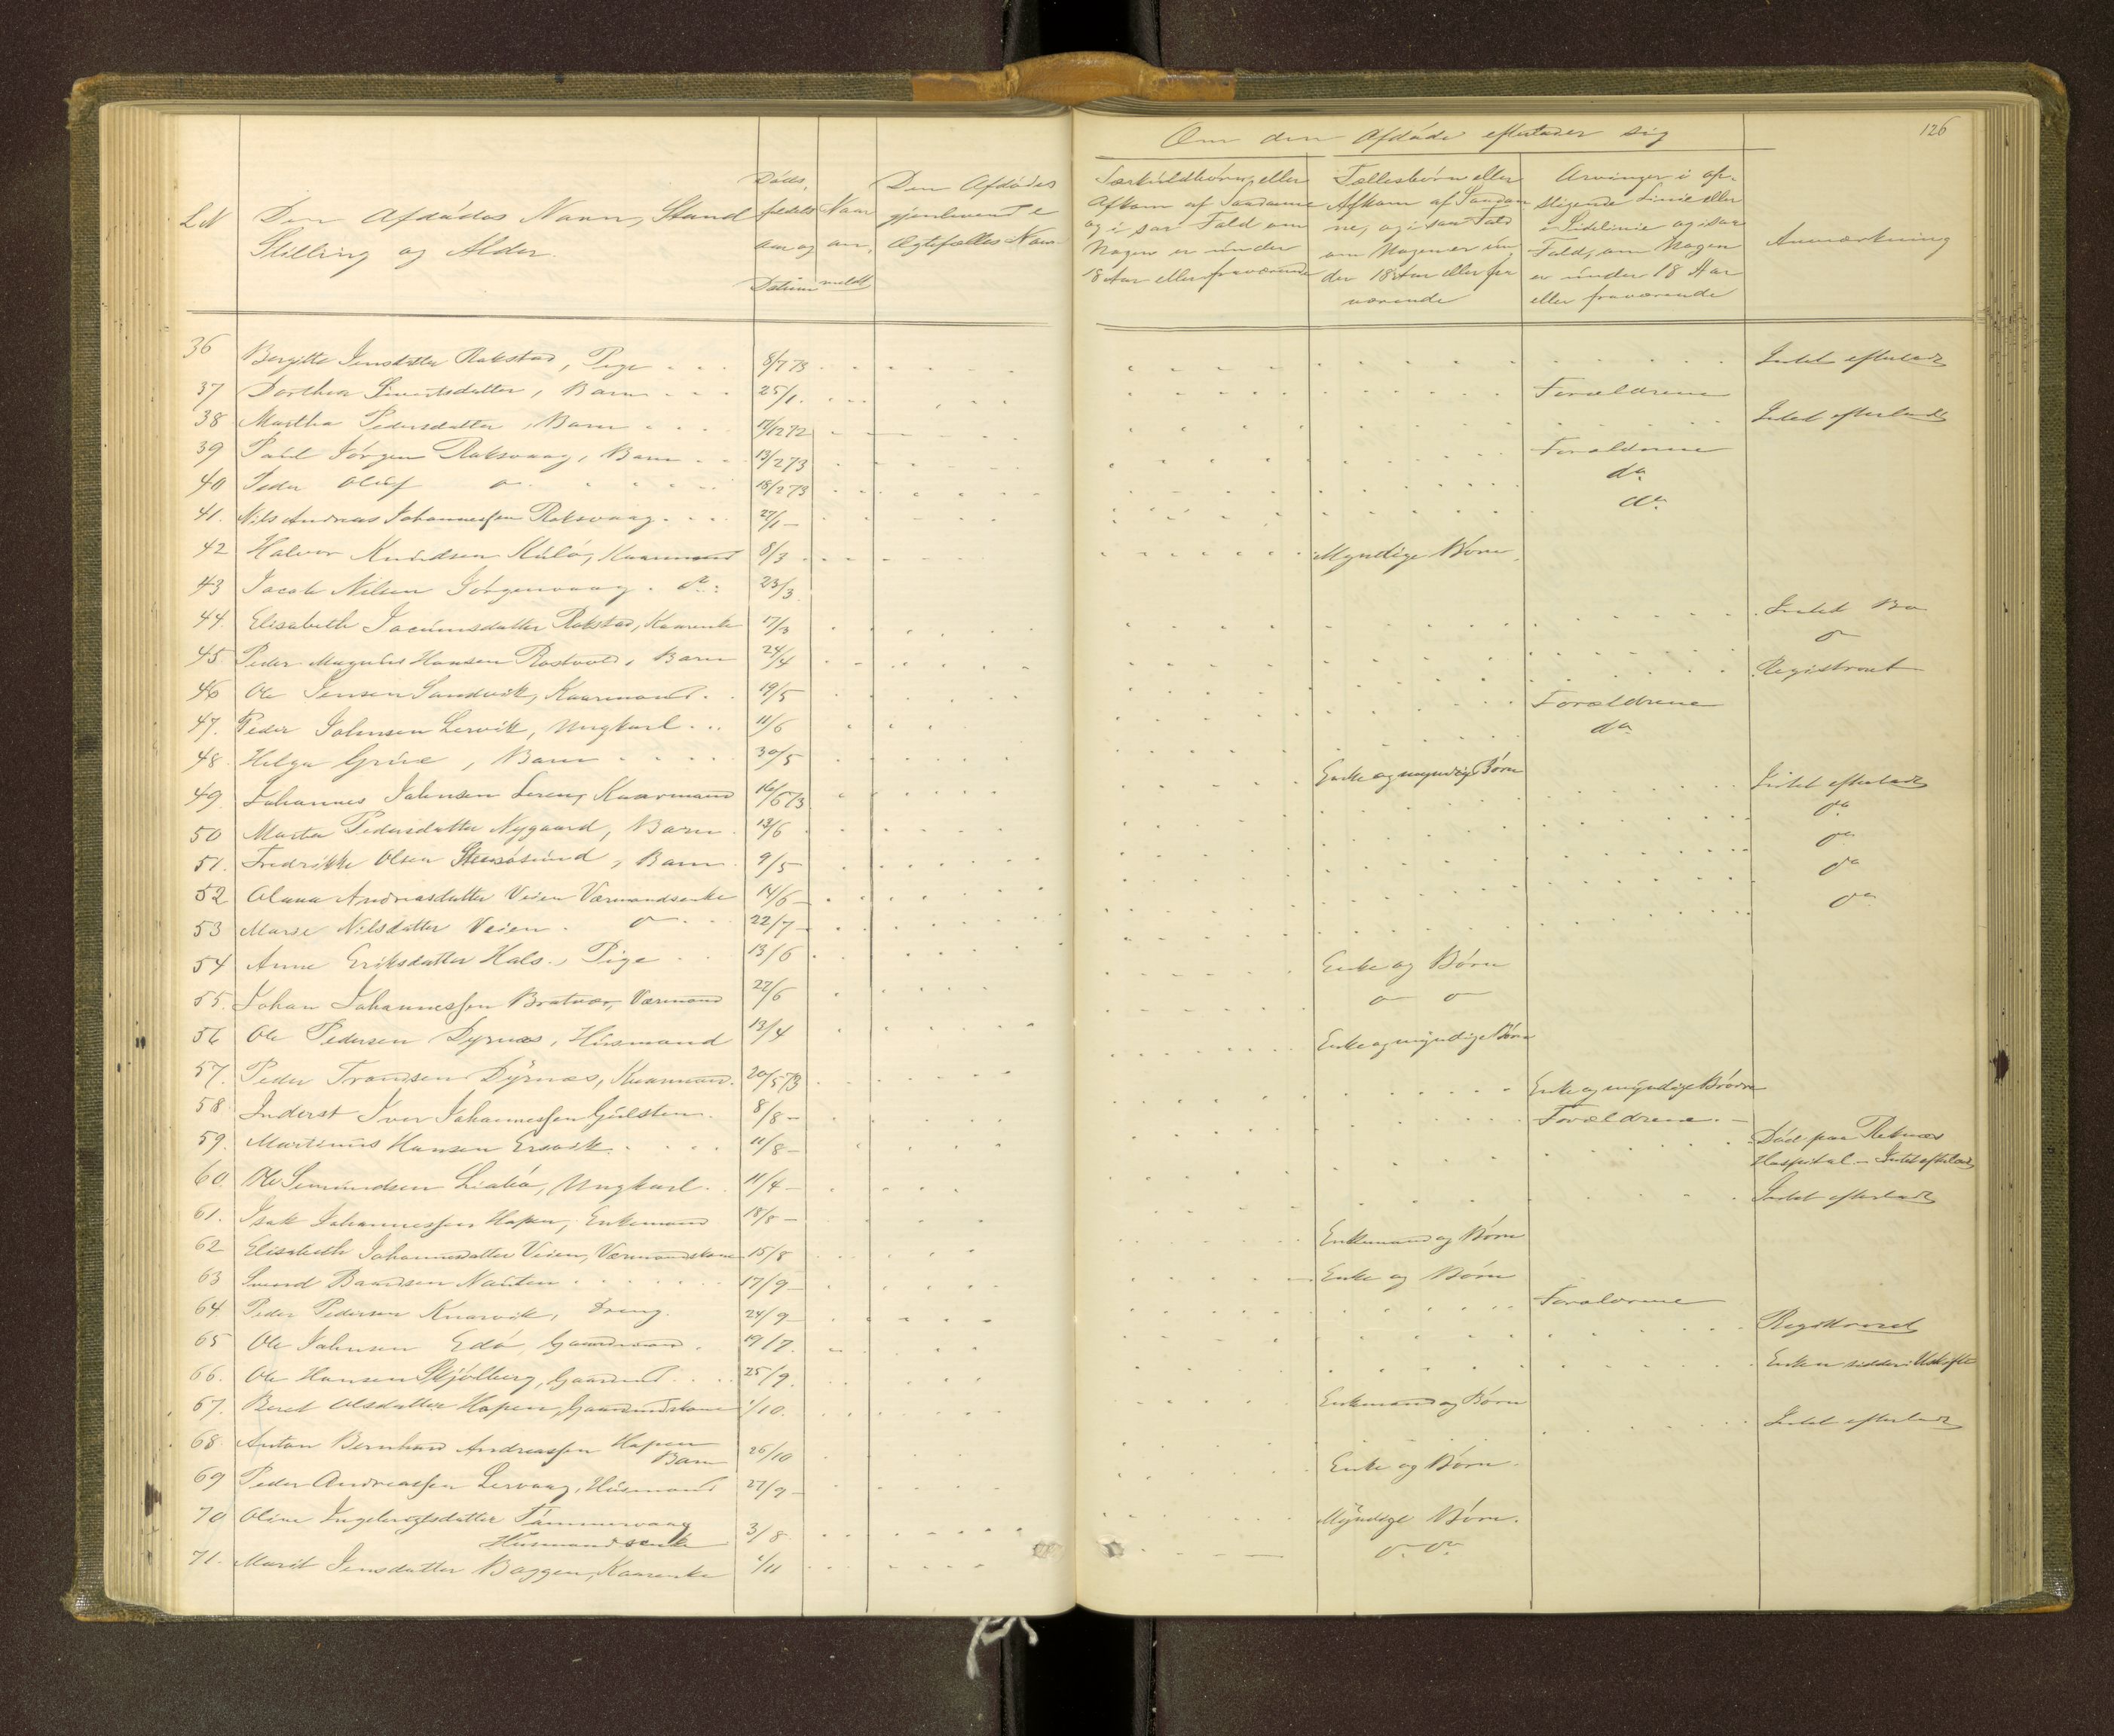 126
Om den Afdøde efterlader sig
L N
Den Afdødes Navn, Stand
Stilling og Alder.
Døds-
faldets
Datum
Naar
an-
meldt
Den Afdødes
gjenlevende
Ægtefælles Navn
Særkuldbørn, eller
Afkom af Saadanne
og i saa Fald om
Nogen er under
18 Aar eller fraværende
Fællesbørn eller
Afkom af Saadan
ne, og i saa Fald
om Nogen er un
der 18 Aar eller fra
værende
Arvinger i op-
stigende Linie eller
i Sidelinie og i saa
Fald, om Nogen
er under 18 Aar
eller fraværende
Anmærkning
36 Bergitte Jensdatter Rokstad, Pige 8/7 73 Intet efterladt
37 Dorthea Sivertsdatter, Barn 25/1. Forældrene
38 Martha Pedersdatter, Barn 17/12 72 Intet efterladt
39 Paul Jørgen Roksvaag, Barn 13/2 73 Forældrene
40 Peder Oluf do 18/2 73 do
41. Nils Andreas Johannessen Roksvaag 27/1 - do
42 Halvor Knudsen Kulø, Kaarmand 8/3 Myndige Børn
43 Jacob Nilsen Jørgenvaag. do 23/3
44. Elisabeth Jocumsdatter Rokstad, Kaarenke 17/3 Intet Bo
45 Peder Magnus Hansen Rostvold, Barn 24/4 do
46 Ole Jensen Sandvik, Kaarmand. 19/5 Registreret
47. Peder Johnsen Lervik, Ungkarl 11/6 Forældrene
48. Helga Grüe, Barn 30/5 do
49. Johannes Johnsen Leren, Kaarmand 16/6 73 Enke og myndige Børn
50 Marta Pedersdatter Nygaard, Barn 13/6 Intet efterladt
51. Fredrikke Olsen Stensøsund, Barn 9/5 do
52 Olava Andreasdatter Veien Værmandsenke 14/6 - do
53 Marie Nilsdatter Veien. do 22/7 - do
54 Anne Eriksdatter Hals., Pige 13/6 do
55. Johan Johannessen Bratvær, Værmand 22/6 Enke og Børn
56 Ole Pedersen Dyrnæs, Husmand 13/4 do do
57. Peder Trondsen Dyrnæs, Kaarmand. 20/5 73 Enke og myndige Børn
58. Inderst Iver Johannessen Gulsten. 8/8 - Enke og myndige Brødre
59. Martinus Hansen Ersvik. 11/8 - Forældrene. -
60. Ole Simundsen Liabø, Ungkarl. 11/4 - Død paa Reknæs
Hospital - Intet efterladt
61. Isak Johannessen Hopen, Enkemand 18/8 - Intet efterladt
62 Elisabeth Johannesdatter Veien, Værmandskone 15/8 Enkemand og Børn
63 Svend Baardsen Nausten 17/9 - Enke og Børn
64 Peder Pedersen Knarvik, Dreng. 24/9 - Forældrene
65 Ole Johnsen Edø, Gaardmand. 19/7. Registreret
66. Ole Hansen Skjølberg, Gaardmd 25/9. Enken sidder i Uskifte
67. Beret Olsdatter Hopen, Gaardmandskone 1/10. Enkemand og Børn
68 Anton Bernhard Andreassen Hopen
Barn 26/10 Intet efterladt
69 Peder Andreassen Lervaag, Husmand 27/9 - Enke og Børn.
70 Oline Ingebrigtsdatter Tømmervaag
Husmandsenke 3/8 Myndige Børn.
71. Marit Jensdatter Baggen, Kaarenke 1/11 do do